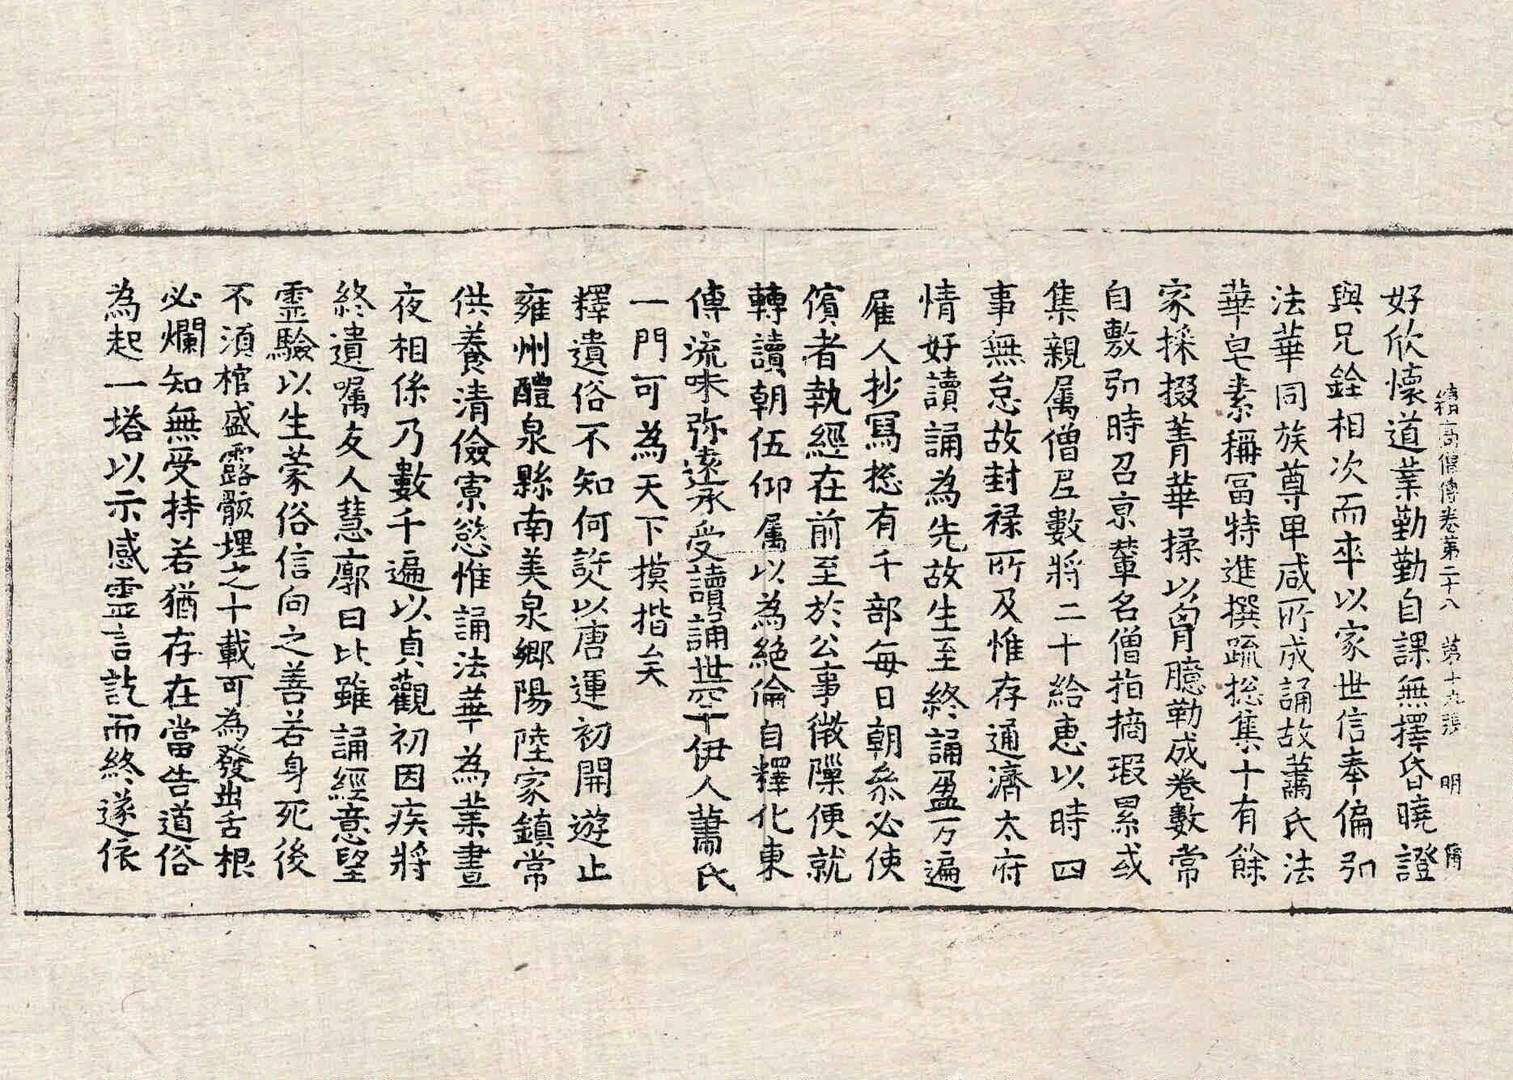 續高僧傳卷第二十八　第十九張　明
好欣懷道業勤勤自課無擇昏曉證
與兄銓相次而卒以家世信奉偏弘
法華同族尊卑咸所成誦故蕭氏法
華皂素稱冨特進撰疏捴集十有餘
家採掇菁華揉以胷臆勒成卷數常
自敷弘時召京輦名僧指摘瑕累或
集親属僧尼數將二十給惠以時四
事無怠故封祿所及惟存通濟太府
情好讀誦為先故生至終誦盈万遍
雇人抄冩捴有千部每日朝叅必使
儐者執經在前至於公事微隟便就
轉讀朝伍仰属以為絕倫自釋化東
傳流味弥遠承受讀誦世罕伊人蕭氏
一門可為天下摸揩矣
釋遺俗不知何許以唐運初開遊止
雍州醴泉縣南美泉鄉陽陸家鎮常
供養清儉寡慾惟誦法華為業晝
夜相係乃數千遍以貞觀初因疾將
終遺囑友人慧廓曰比雖誦經意望
靈驗以生蒙俗信向之善若身死後
不湏棺盛露骸埋之十載可為發出舌根
必爛知無受持若猶存在當告道俗
為起一塔以示感靈言訖而終遂依